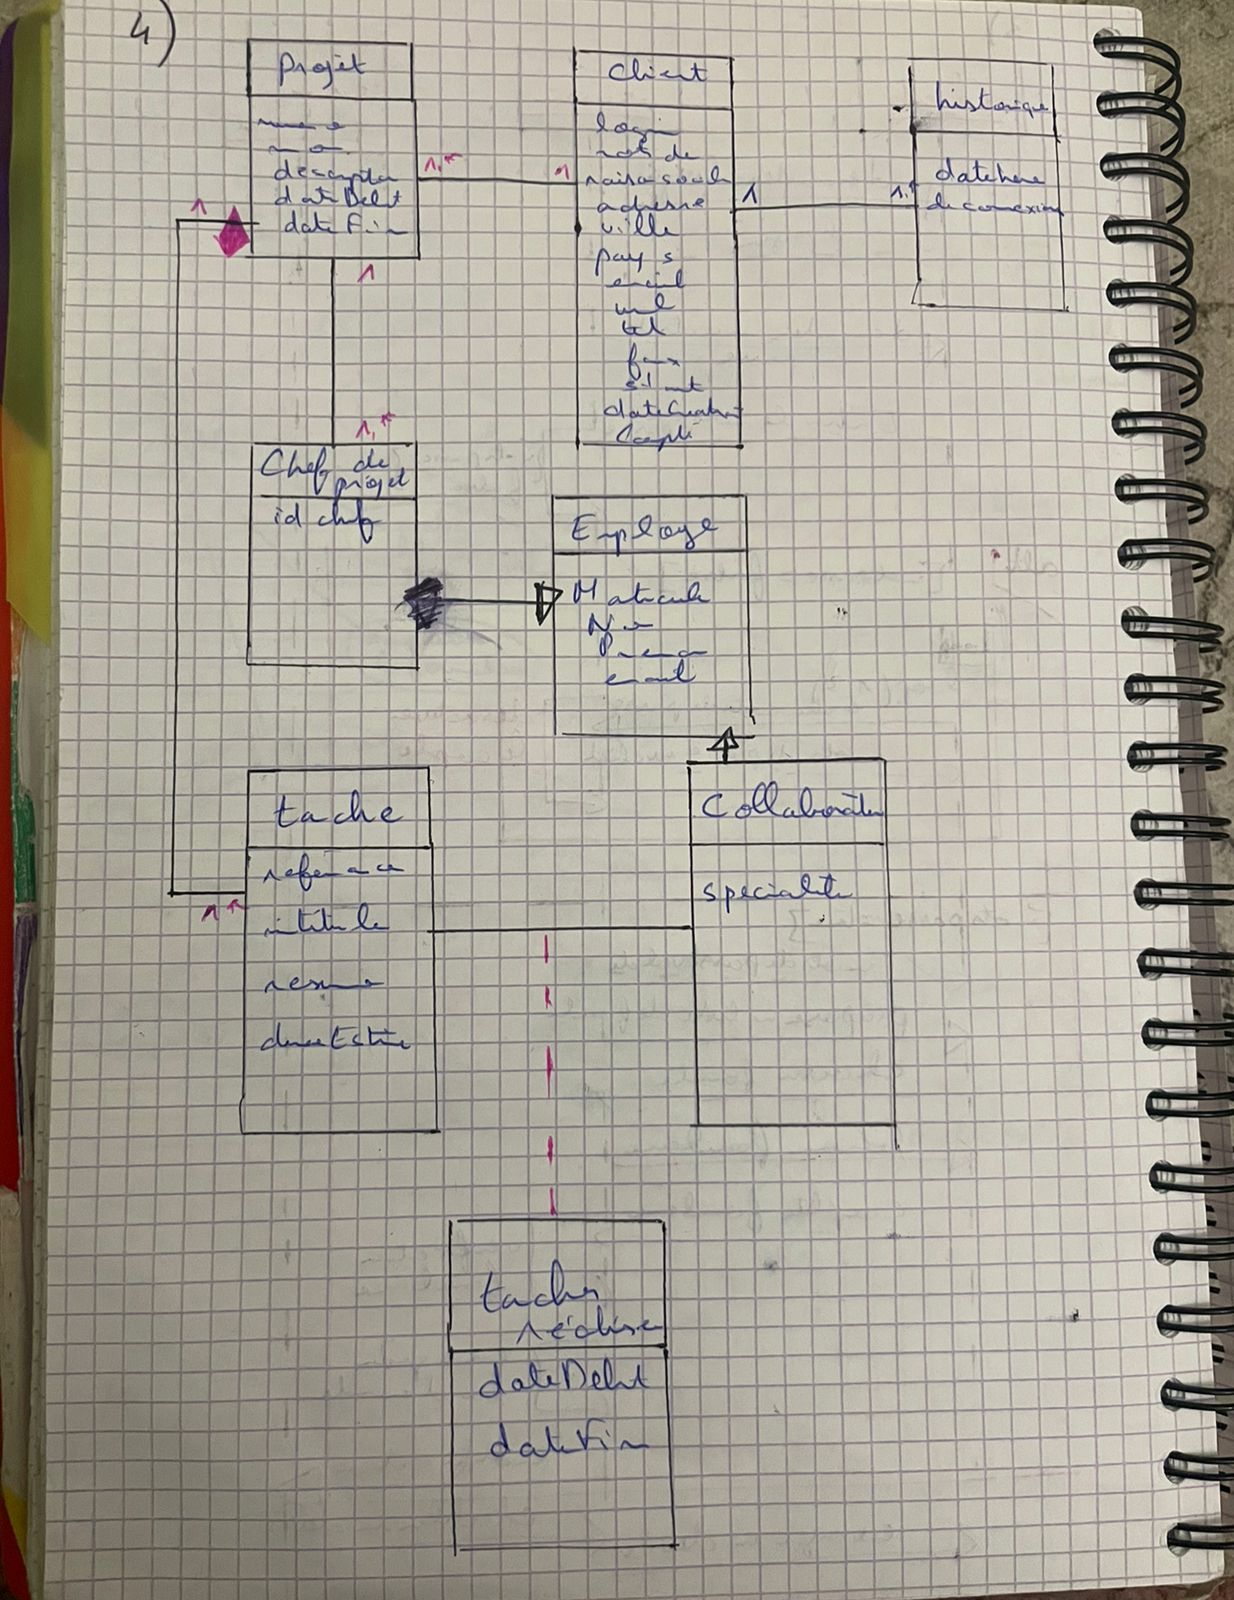 4)
Projet
descriptn
dateDebut
dateFin
1
1
1..*
1
Client
login
mots de
adresse
ville
pays
email
url
tel
fax
dateCreation
Compte
1
historique
dateheure
de connexion
1..*
Chef de
projet
id chef
Employe
Matricule
Nom
Prenom
email
tache
reference
intitule
resume
dureeEstime
1..*
Collaborateur
specialite
taches
réalise
dateDebut
dateFin